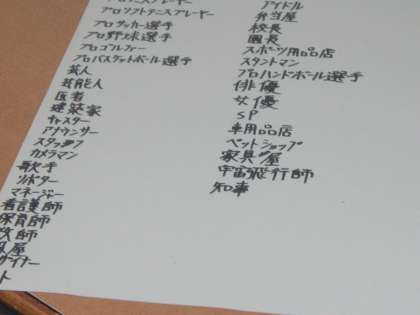 プロテニスプレーヤー
プロソフトテニスプレーヤー
プロサッカー選手
プロ野球選手
プロゴルファー
プロバスケットボール選手
芸人
芸能人
医者
建築家
キャスター
アナウンサー
スタッフ
カメラマン
歌手
リポーター
マネージャー
看護師
保育師
牧師
屋
ト
アイドル
弁当屋
校長
園長
スポーツ用品店
スタントマン
プロハンドボール選手
俳優
女優
SP
車用品店
ペットショップ
家具屋
宇宙飛行師
知事